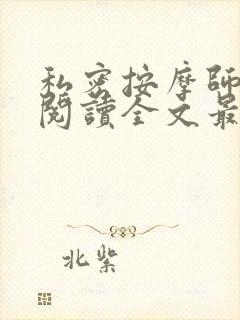 私密按摩師
閱讀全文最
北紫